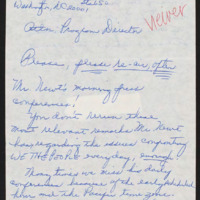 Washington, DC 20001
never
Attn: Program Director
Please, please re-air, often
Mr. Newt's morning press
conferences!
You don't rerun these
most relevant remarks Mr. Newt
has regarding the issues confronting
WE THE PEOPLE everyday, enough
Those times we miss his daily
conferences because of the early scheduled
time out the Pacific time zone.